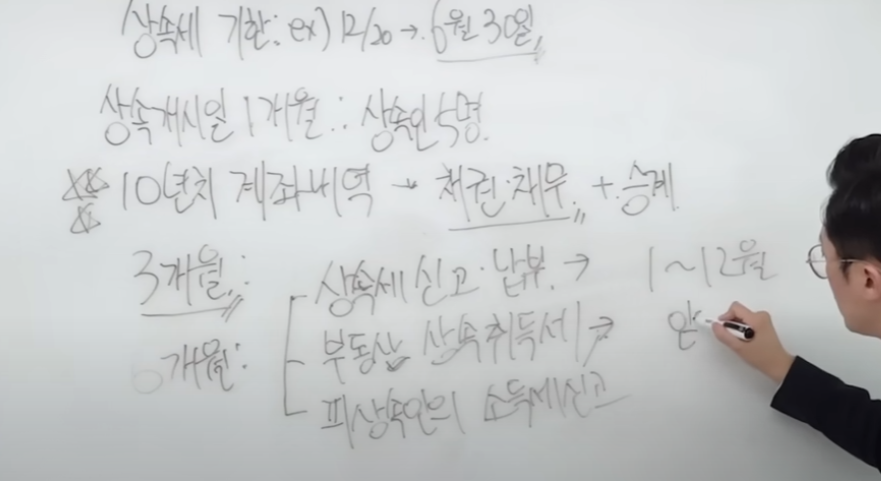 상속세 기한: ex) 12/20 → 6월 30일
상속개시일 1개월: 상속인 5명
10년치 계좌내역 → 채권·채무 + 승계
3개월:
상속세 신고·납부 → 1~12월
6개월: 부동산 상속취득세 →
피상속인의 소득세신고